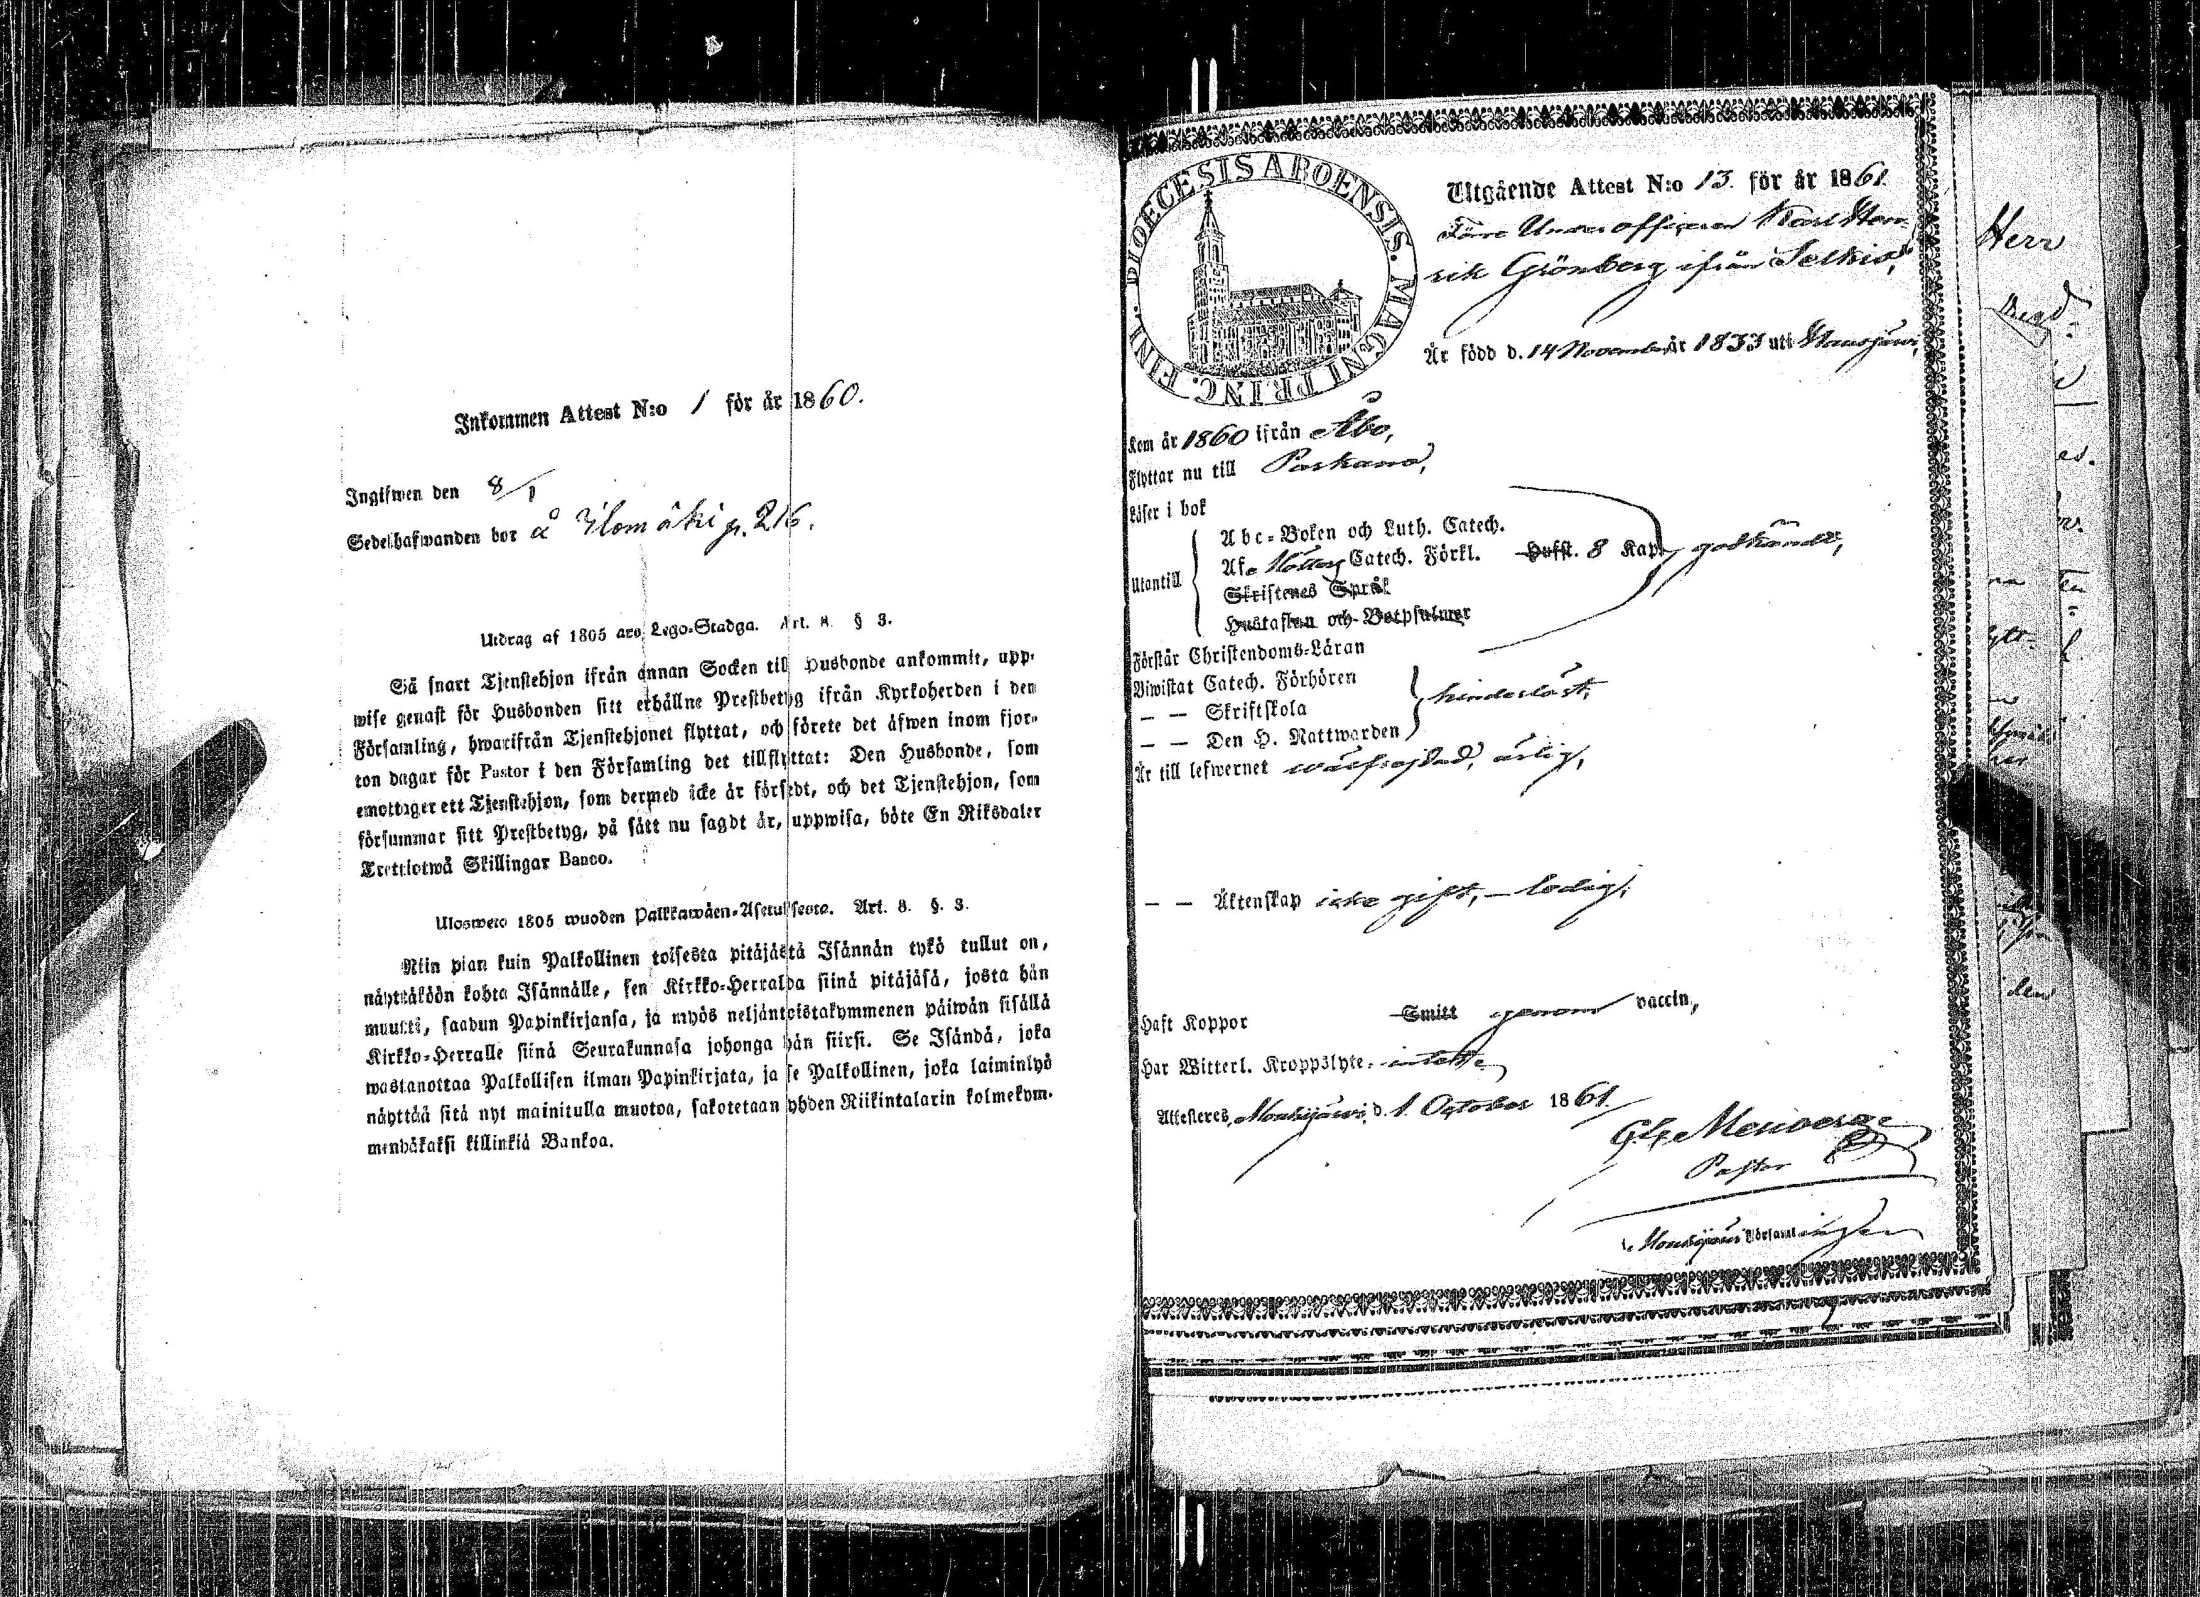 Inkommen Attest N:o 1 för år 1860.
Ingifwen den 8/1
Sedelhafwanden bor å Ilomäki p. 216.
Utdrag af 1805 ars Lego-Stadga. Art. 8. § 3.
Så snart Tjenstehjon ifrån annan Socken till Husbonde ankommit, upp-
wise genast för Husbonden sitt erhållne Prestbetyg ifrån Kyrkoherden i den
Församling, hwarifrån Tjenstehjonet flyttat, och förete det äfwen inom fjor-
ton dagar för Pastor i den Församling det tillflyttat: Den Husbonde, som
emottager ett Tjenstehjon, som dermed icke är försedt, och det Tjenstehjon, som
försummar sitt Prestbetyg, på sätt nu sagdt är, uppwisa, böte En Riksdaler
Trettiotwå Skillingar Banco.
Ulosweto 1805 wuoden Palkkawäen-Asetuksesta. Art. 8. §. 3.
Niin pian kuin Palkollinen toisesta pitäjästä Isännän tykö tullut on,
näyttäköön kohta Isännälle, sen Kirkko-Herralda siinä pitäjäsä, josta hän
muutti, saadun Papinkirjansa, ja myös neljäntoistakymmenen päiwän sisällä
Kirkko-Herralle siinä Seurakunnasa johonga hän siirsi. Se Isändä, joka
wastanottaa Palkollisen ilman Papinkirjata, ja se Palkollinen, joka laiminlyö
näyttää sitä nyt mainitulla muotoa, sakotetaan yhden Riikintalarin kolmekym-
mendäkaksi killinkiä Bankoa.
DIOECESIS ABOENSIS. MAGNI PRINC. FINL.
Utgående Attest N:o 13. för år 1861.
Förre Underofficeren Karl Hen-
rik Grönberg ifrån Selkis,
Är född d. 14 November år 1833 uti Hausjärvi,
Kom år 1860 ifrån Åbo,
Flyttar nu till Parkano,
Läser i bok
Utantill
Abc-Boken och Luth. Catech.
Af Catech. Förkl. Hufst. 8 Kap. godkändt,
Skriftenes Språk
Hustaflan och Botpsalmer
Förstår Christendoms-Läran
Biwistat Catech. Förhören
— — Skriftskola hinderlöst,
— — Den H. Nattwarden
Är till lefwernet wälfrejdad, ärlig,
— — Äktenskap icke gift, – ledig,
Haft Koppor Smitt genom vaccin,
Har Witterl. Kroppslyte intet
Attesteres, Mouhijärvi, d. 1. October 1861.
Pastor
i Mouhijärvi Församlingen
Herr
den